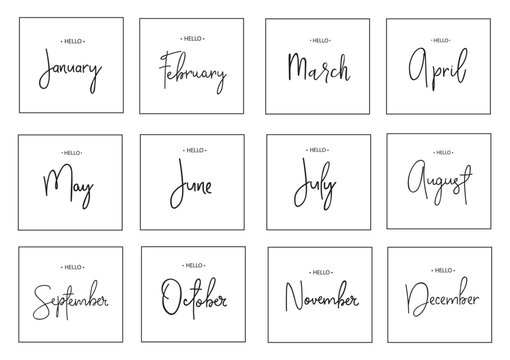 • HELLO •
January
• HELLO •
February
• HELLO •
March
• HELLO •
April
• HELLO •
May
• HELLO •
June
• HELLO •
July
• HELLO •
August
• HELLO •
September
• HELLO •
October
• HELLO •
November
• HELLO •
December